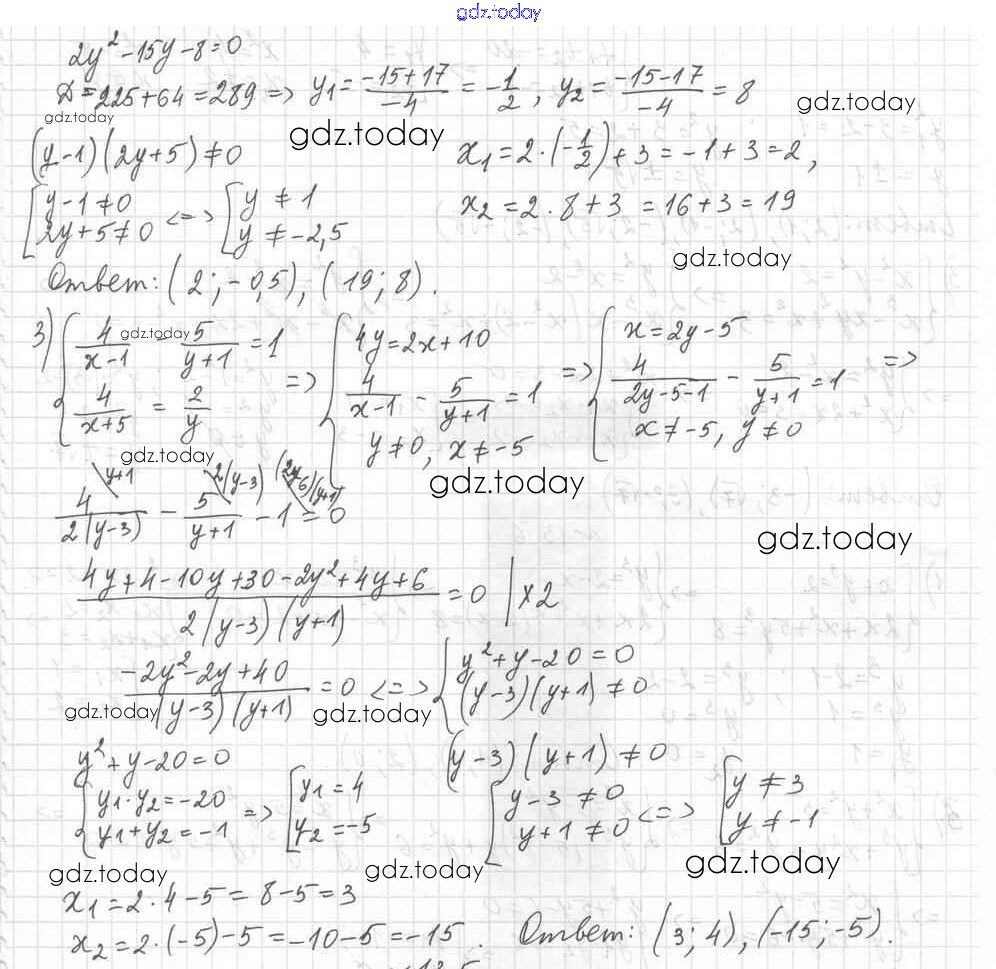 gdz.today
2y² - 15y - 8 = 0
D = 225 + 64 = 289 => y₁ = (-15+17)/(-4) = -1/2, y₂ = (-15-17)/(-4) = 8
gdz.today
gdz.today
gdz.today
(y-1)(2y+5) ≠ 0
x₁ = 2·(-1/2) + 3 = -1 + 3 = 2,
[y-1 ≠ 0 <=> [y ≠ 1
2y+5 ≠ 0 y ≠ -2,5
x₂ = 2·8+3 = 16+3 = 19
gdz.today
Ответ: (2; -0,5), (19; 8).
3) {4/(x-1) - 5/(y+1) = 1 => {4y = 2x+10 => {x = 2y-5
gdz.today
4/(x+5) = 2/y 4/(x-1) - 5/(y+1) = 1 4/(2y-5-1) - 5/(y+1) = 1 =>
y ≠ 0, x ≠ -5 x ≠ -5, y ≠ 0
gdz.today
gdz.today
y+1 2(y-3) (2y-6)(y+1)
4/(2(y-3)) - 5/(y+1) - 1 = 0
gdz.today
(4y+4-10y+30-2y²+4y+6)/(2(y-3)(y+1)) = 0 | ×2
(-2y²-2y+40)/((y-3)(y+1)) = 0 <=> {y²+y-20 = 0
(y-3)(y+1) ≠ 0
gdz.today
gdz.today
y²+y-20 = 0
(y-3)(y+1) ≠ 0
{y₁·y₂ = -20 => [y₁ = 4
y₁+y₂ = -1 y₂ = -5
[y-3 ≠ 0 <=> [y ≠ 3
y+1 ≠ 0 y ≠ -1
gdz.today
gdz.today
gdz.today
x₁ = 2·4-5 = 8-5 = 3
x₂ = 2·(-5)-5 = -10-5 = -15. Ответ: (3; 4), (-15; -5).